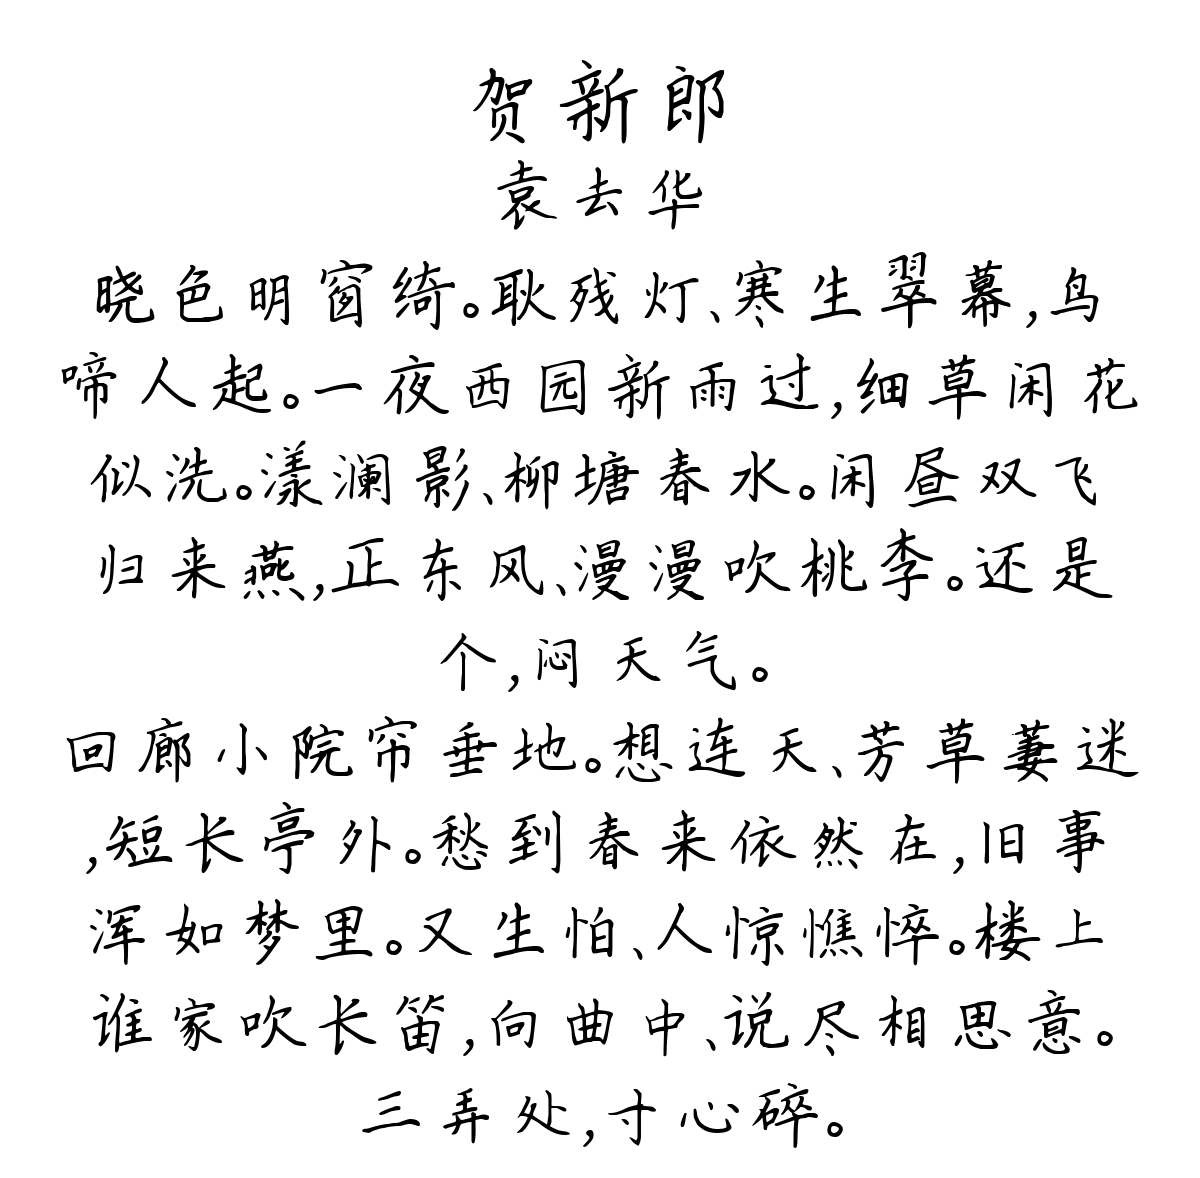 贺新郎
袁去华
晓色明窗绮。耿残灯、寒生翠幕,鸟
啼人起。一夜西园新雨过,细草闲花
似洗。漾澜影、柳塘春水。闲昼双飞
归来燕,正东风、漫漫吹桃李。还是
个,闷天气。
回廊小院帘垂地。想连天、芳草萋迷
,短长亭外。愁到春来依然在,旧事
浑如梦里。又生怕、人惊憔悴。楼上
谁家吹长笛,向曲中、说尽相思意。
三弄处,寸心碎。